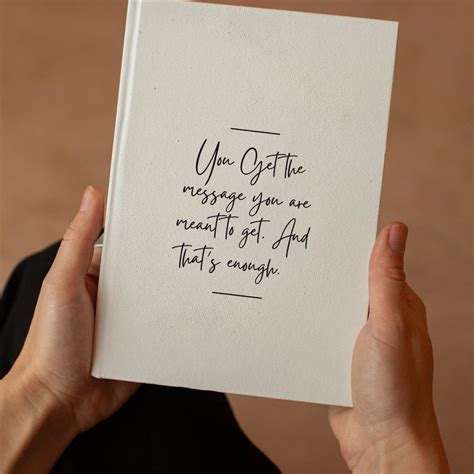 You Get the
message you are
meant to get. And
that's enough.